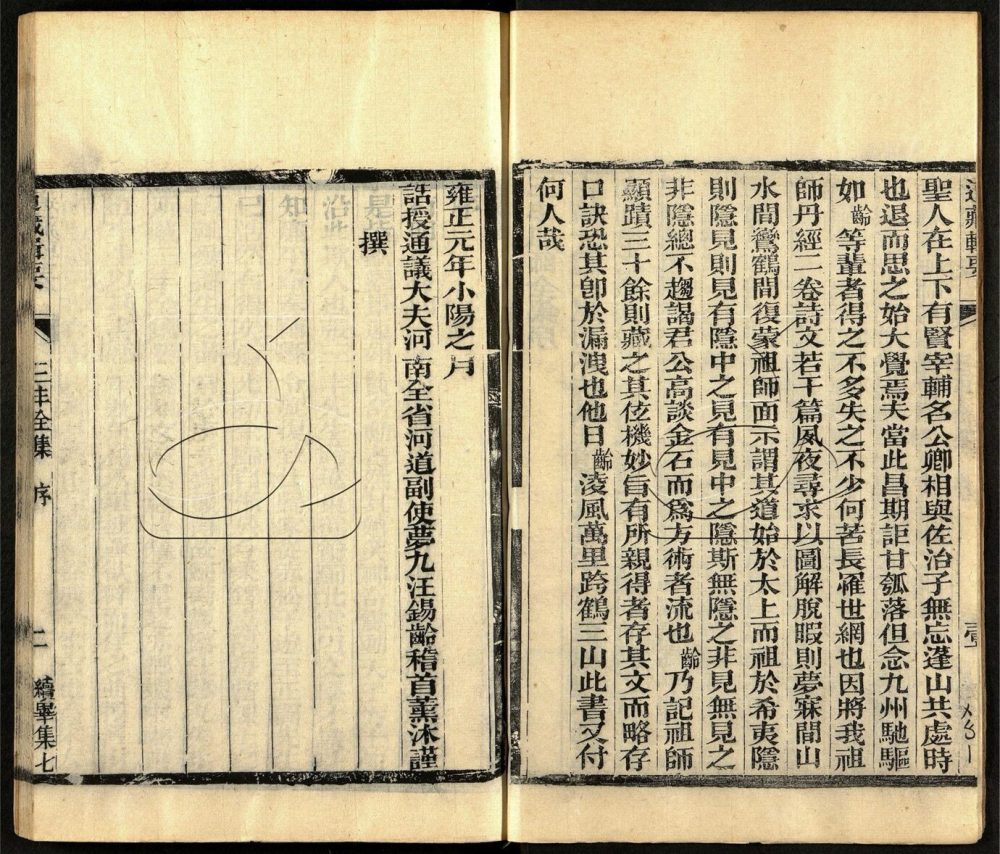 道藏輯要
壹
聖人在上下有賢宰輔名公卿相與佐治子無忘蓬山共處時
也退而思之始大覺焉夫當此昌期詎甘瓠落但念九州馳驅
如齡等輩者得之不多失之不少何苦長罹世網也因將我祖
師丹經二卷詩文若干篇夙夜尋求以圖解脫暇則夢寐間山
水間鸞鶴間復蒙祖師面示謂其道始於太上而祖於希夷隱
則隱見則見有隱中之見有見中之隱斯無隱之非見無見之
非隱總不趨謁君公高談金石而爲方術者流也齡乃記祖師
顯蹟三十餘則藏之其伭機妙旨有所親得者存其文而略存
口訣恐其卽於漏洩也他日齡淩風萬里跨鶴三山此書又付
何人哉
雍正元年小陽之月
誥授通議大夫河南全省河道副使夢九汪錫齡稽首薰沐謹
撰
道藏輯要
三丰全集
序
二
續畢集七